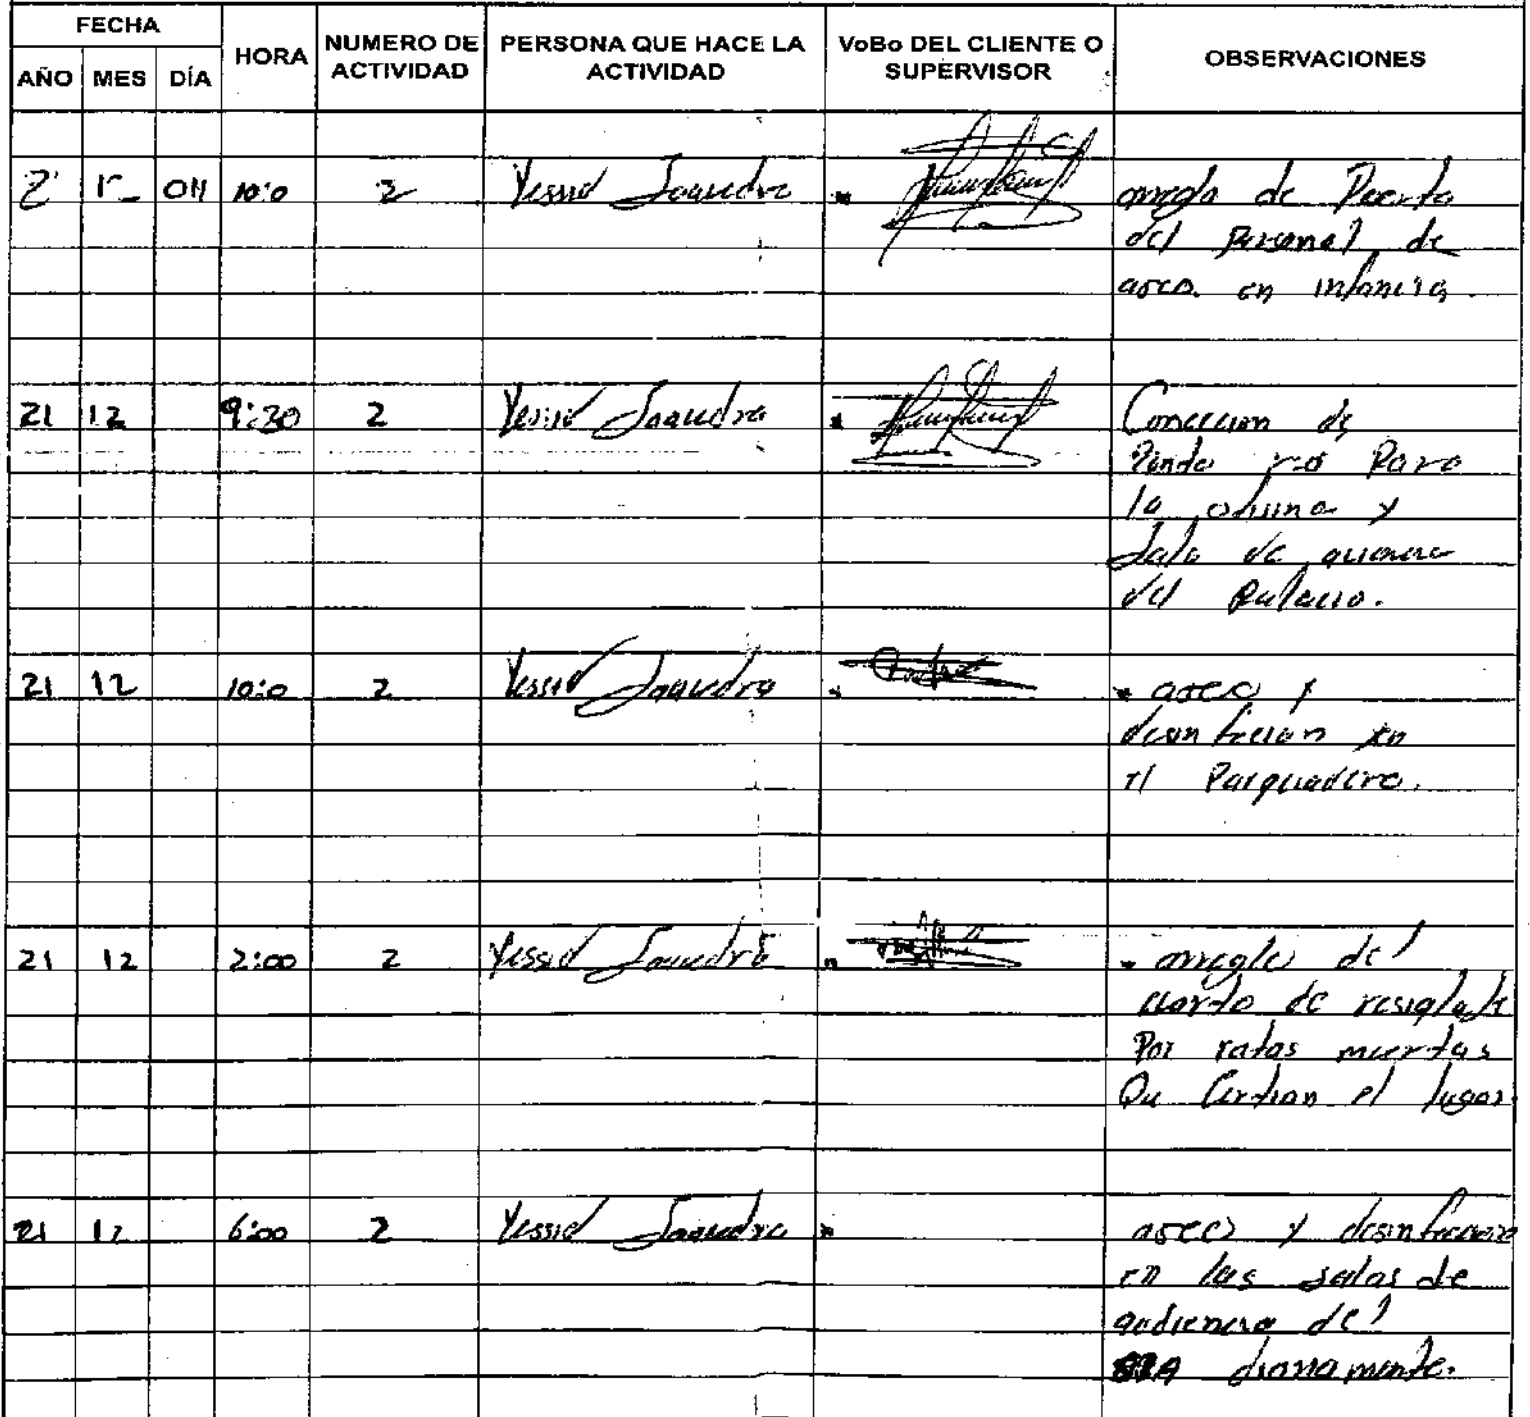 FECHA
HORA
NUMERO DE
ACTIVIDAD
PERSONA QUE HACE LA
ACTIVIDAD
VoBo DEL CLIENTE O
SUPERVISOR
OBSERVACIONES
AÑO MES DÍA
10:0 2 Yessid Saavedra arreglo de Puerta
del Personal de
aseo en infancia.
21 12 9:30 2 Yessid Saavedra Coneccion de
Para
la oficina y
Sala de
del Palacio.
21 12 10:0 2 Yessid Saavedra aseo y
desinfeccion en
el Parqueadero.
21 12 2:00 2 Yessid Saavedra arreglo del
cuarto de
Por ratas muertas
Qu el lugar
21 12 6:00 2 Yessid Saavedra aseo y desinfeccion
en las salas de
audiencia del
diariamente.